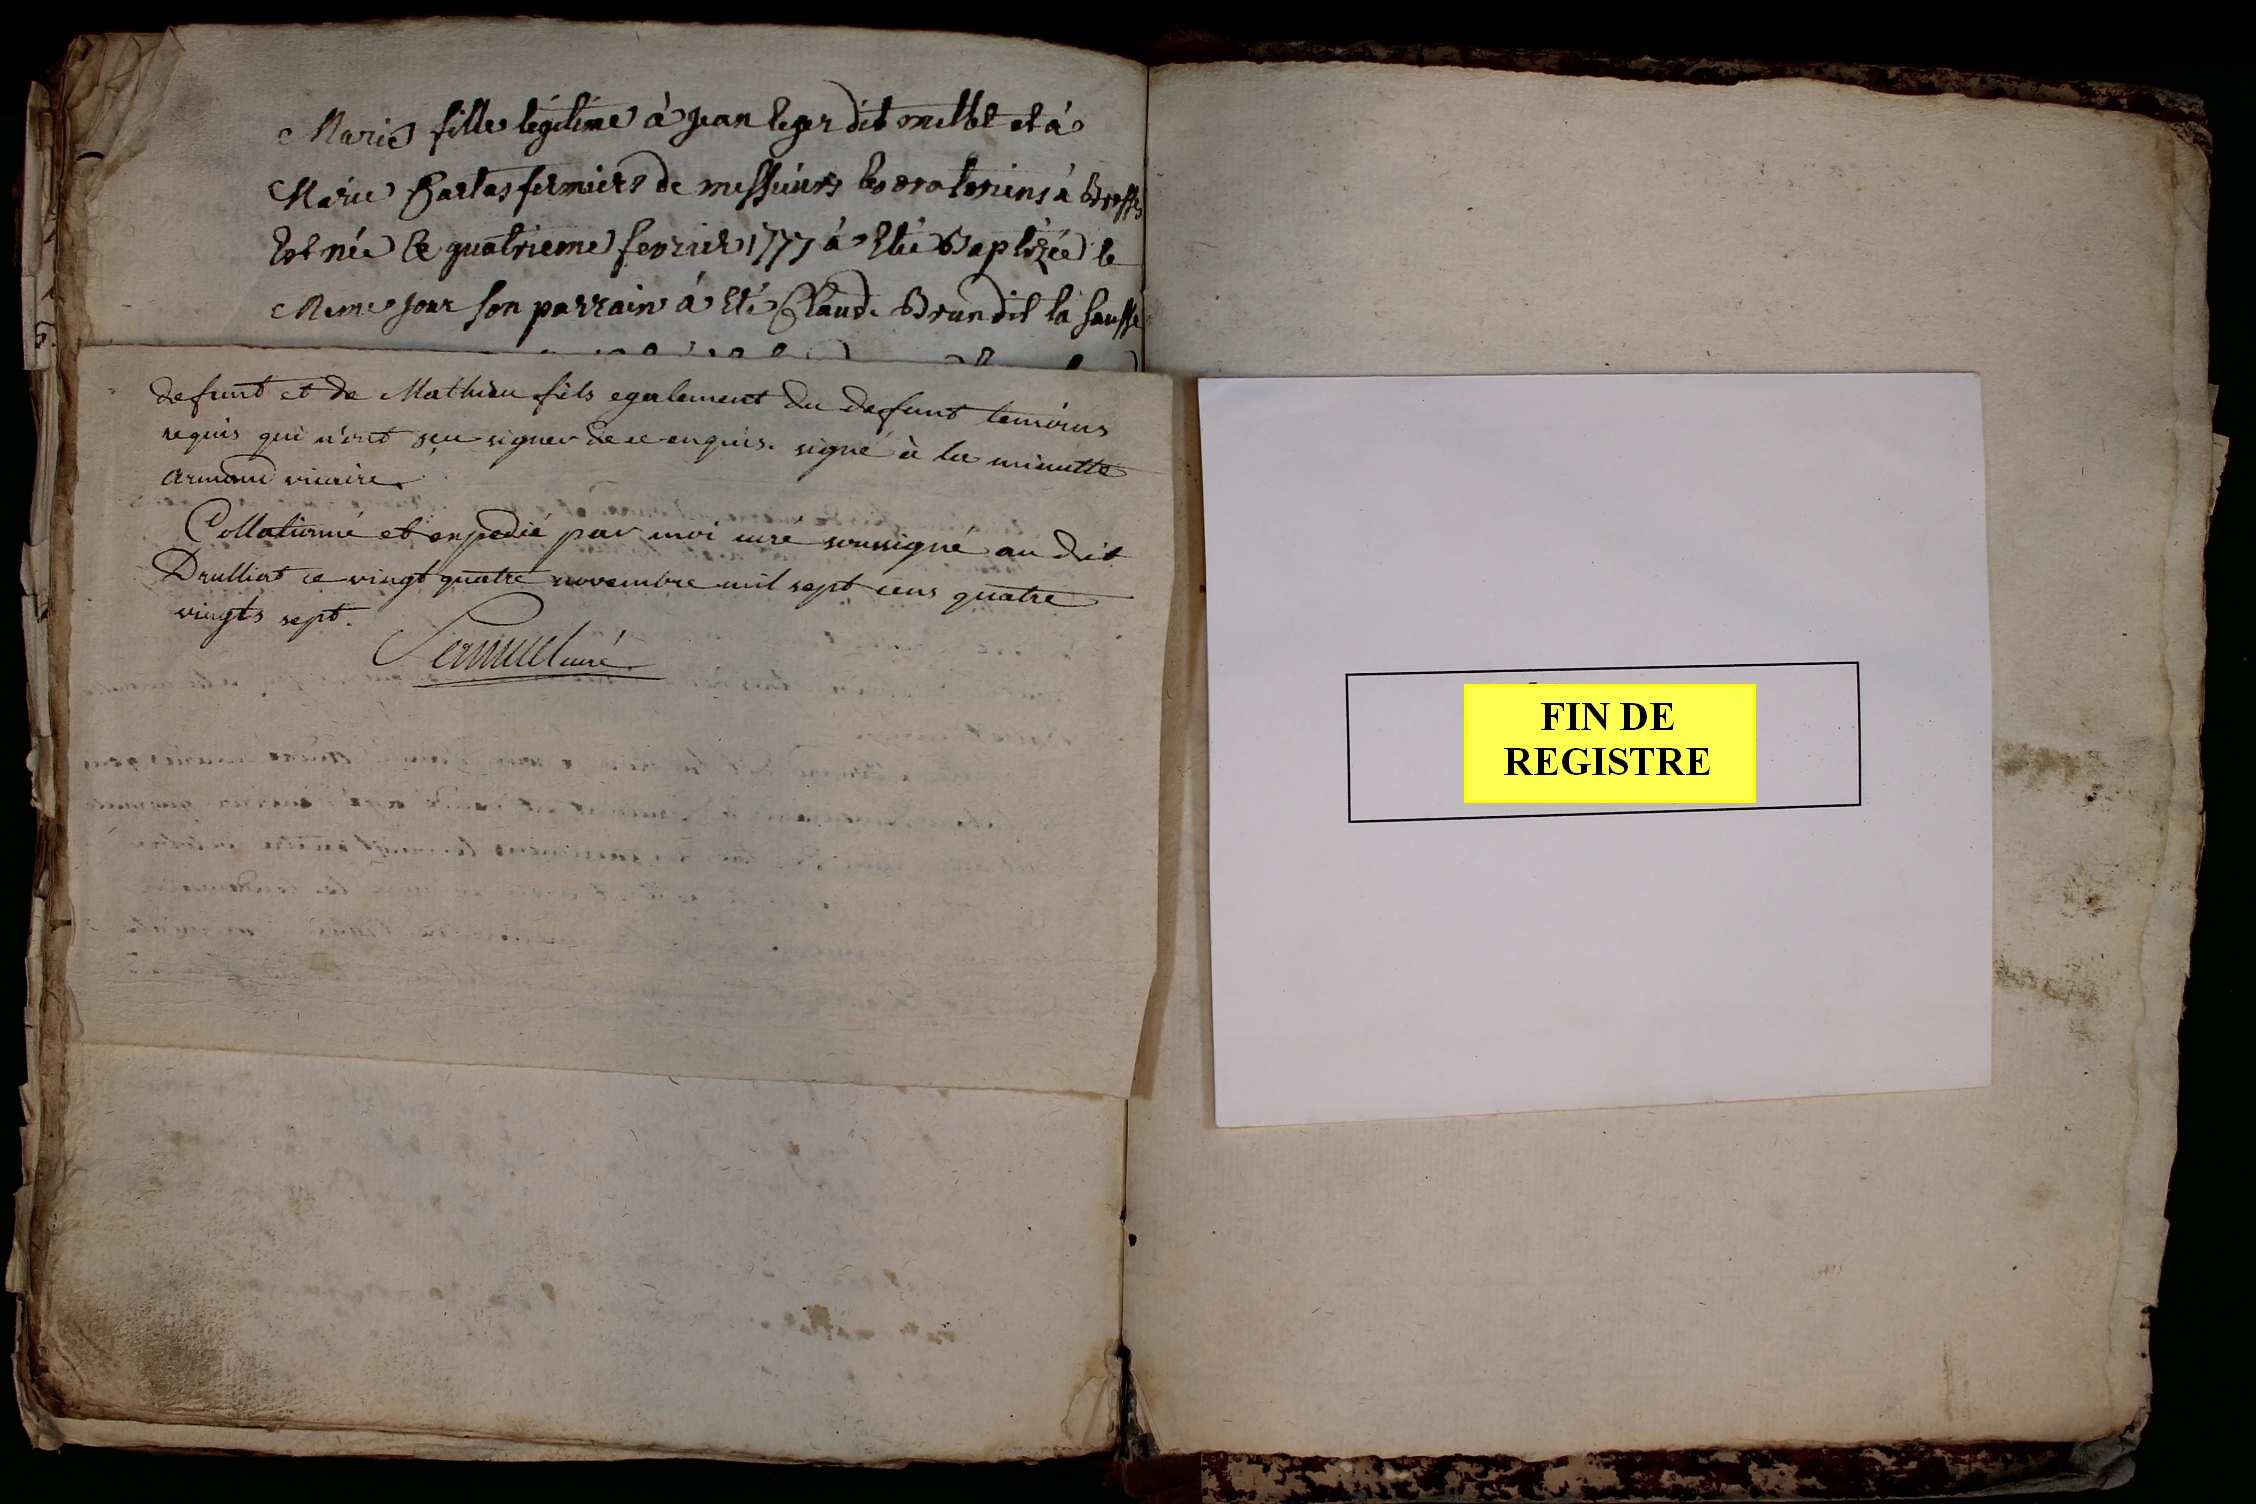 Marie fille légitime à jean leger dit et à
Marie fermiers de messieurs les oratoriens à
Est née le quatrieme fevrier 1777 à Eté Baptizée le
Meme jour son parrain à Eté Claude Brun dit la
defunt et de Mathieu fils egalement du defunt temoins
requis qui n'ont sçu signer de ce enquis. signé à la minutte
armand vicaire.
Collationné et expedié par moi curé soussigné au dit
Drulliat ce vingt quatre novembre mil sept cens quatre
vingts sept.
curé
FIN DE
REGISTRE